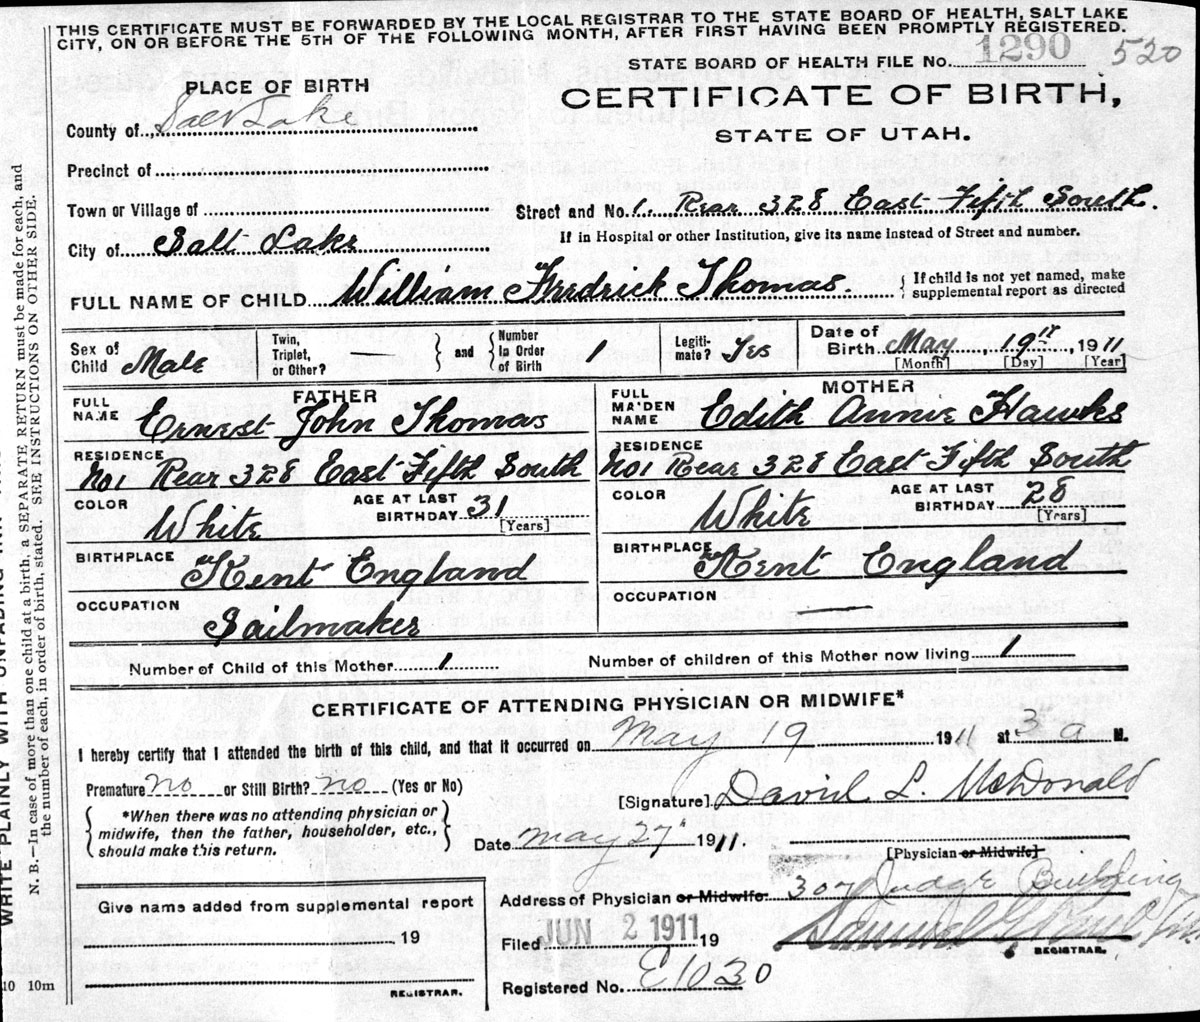 THIS CERTIFICATE MUST BE FORWARDED BY THE LOCAL REGISTRAR TO THE STATE BOARD OF HEALTH, SALT LAKE
CITY, ON OR BEFORE THE 5TH OF THE FOLLOWING MONTH, AFTER FIRST HAVING BEEN PROMPTLY REGISTERED.
STATE BOARD OF HEALTH FILE No. 1290 520
PLACE OF BIRTH
CERTIFICATE OF BIRTH,
STATE OF UTAH.
County of Salt Lake
Precinct of
Town or Village of
Street and No. 1. Rear 328 East Fifth South.
City of Salt Lake
If in Hospital or other Institution, give its name instead of Street and number.
FULL NAME OF CHILD William Fredrick Thomas.
If child is not yet named, make
supplemental report as directed
Sex of
Child Male
Twin,
Triplet,
or Other? —
and
Number
in Order
of Birth 1
Legiti-
mate? Yes
Date of
Birth May, 19th, 1911
[Month] [Day] [Year]
FATHER
FULL
NAME Ernest John Thomas
MOTHER
FULL
MAIDEN
NAME Edith Annie Hawks
RESIDENCE
No 1 Rear 328 East Fifth South
RESIDENCE
No 1 Rear 328 East Fifth South
COLOR White
AGE AT LAST
BIRTHDAY 31
[Years]
COLOR White
AGE AT LAST
BIRTHDAY 28
[Years]
BIRTHPLACE Kent England
BIRTHPLACE Kent England
OCCUPATION
Sailmaker
OCCUPATION —
Number of Child of this Mother 1
Number of children of this Mother now living 1
CERTIFICATE OF ATTENDING PHYSICIAN OR MIDWIFE*
I hereby certify that I attended the birth of this child, and that it occurred on May 19 1911 at 3 a M.
Premature no or Still Birth? no (Yes or No)
[Signature] David L. McDonald
*When there was no attending physician or
midwife, then the father, householder, etc.,
should make this return.
Date May 27" 1911.
[Physician or Midwife]
Address of Physician or Midwife. 307 Judge Building
Give name added from supplemental report
, 19
REGISTRAR.
Filed JUN 2 1911 19
REGISTRAR.
Registered No. E1030
WRITE PLAINLY WITH UNFADING
N. B.—In case of more than one child at a birth, a SEPARATE RETURN must be made for each, and
the number of each, in order of birth, stated. SEE INSTRUCTIONS ON OTHER SIDE.
10 10m